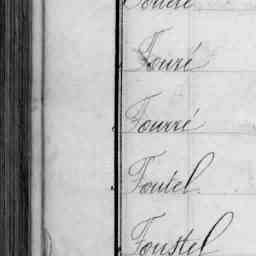 Fouré
Fourré
Foutel
Foustel